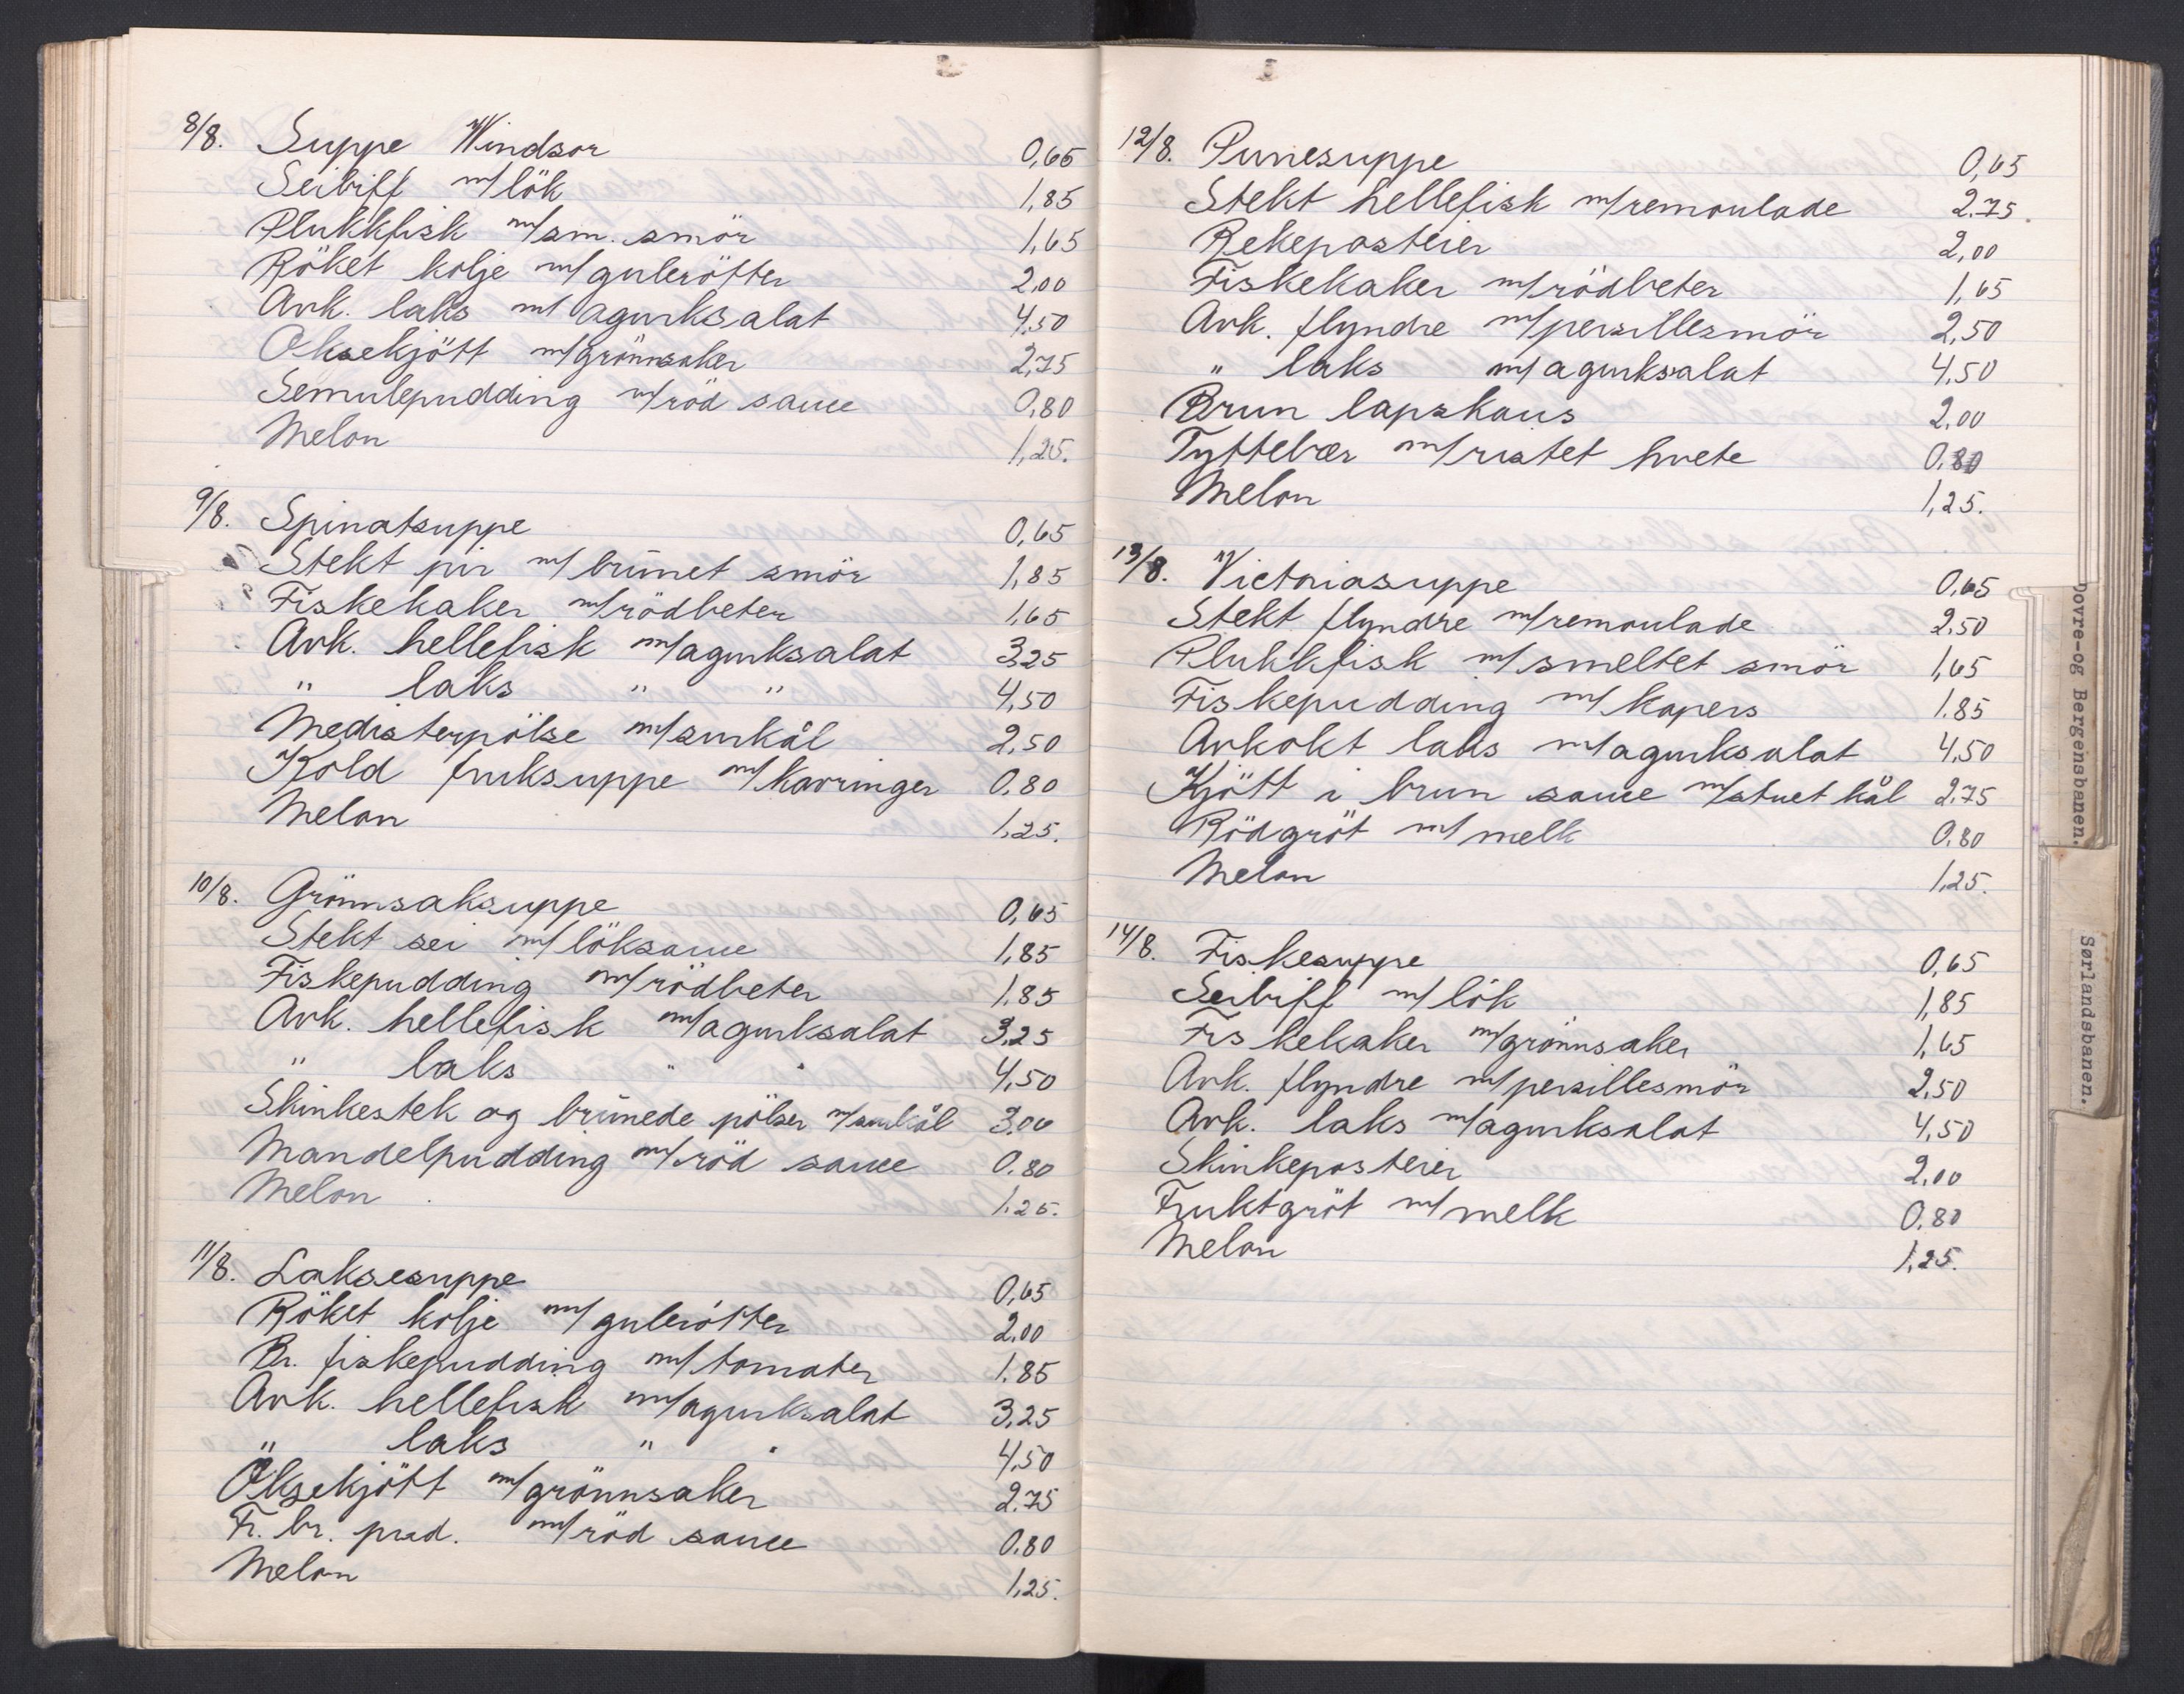 8/8. Suppe Windsor 0,65
Seibiff m/lök 1,85
Plukkfisk m/sm. smör 1,65
Röket kolje m/gulerötter 2,00
Avk. laks m/agurksalat 4,50
Oksekjött m/grönnsaker 2,75
Semulepudding m/röd sauce 0,80
Melon 1,25.
9/8. Spinatsuppe 0,65
Stekt pir m/brunet smör 1,85
Fiskekaker m/rödbeter 1,65
Avk. hellefisk m/agurksalat 3,25
" laks " " 4,50
Medisterpölse m/surkål 2,50
Kold fruksuppe m/kavringer 0,80
Melon 1,25.
10/8. Grönnsaksuppe 0,65
Stekt sei m/löksauce 1,85
Fiskepudding m/rödbeter 1,85
Avk. hellefisk m/agurksalat 3,25
" laks " " 4,50
Skinkestek og brunede pölser m/surkål 3,00
Mandelpudding m/röd sauce 0.80
Melon 1.25.
11/8. Laksesuppe 0,65
Röket kolje m/gulerötter 2.00
Br. fiskepudding m/tomater 1.85
Avk. hellefisk m/agurksalat 3,25
" laks " " 4,50
Oksekjött m/grönnsaker 2.75
Fr. br. pud. m/röd sauce 0.80
Melon 1,25.
12/8. Purresuppe 0,65
Stekt hellefisk m/remoulade 2.75.
Rekeposteier 2,00
Fiskekaker m/rödbeter 1,65
Avk. flyndre m/persillesmör 2,50
" laks m/agurksalat 4,50
Brun lapskaus 2,00
Tyttebær m/ristet hvete 0,80
Melon 1,25.
13/8. Victoriasuppe 0,65
Stekt flyndre m/remoulade 2,50
Plukkfisk m/smeltet smör 1,65
Fiskepudding m/kapers 1.85
Avkokt laks m/agurksalat 4,50
Kjött i brun sauce m/stuet kål 2.75
Rödgröt m/melk 0.80
Melon 1,25.
14/8. Fiskesuppe 0,65
Seibiff m/lök 1,85
Fiskekaker m/grönnsaker 1,65
Avk. flyndre m/persillesmör 2,50
Avk. laks m/agurksalat 4,50
Skinkeposteier 2,00
Fruktgröt m/melk 0.80
Melon 1,25.
Dovre-og Bergensbanen.
Sørlandsbanen.